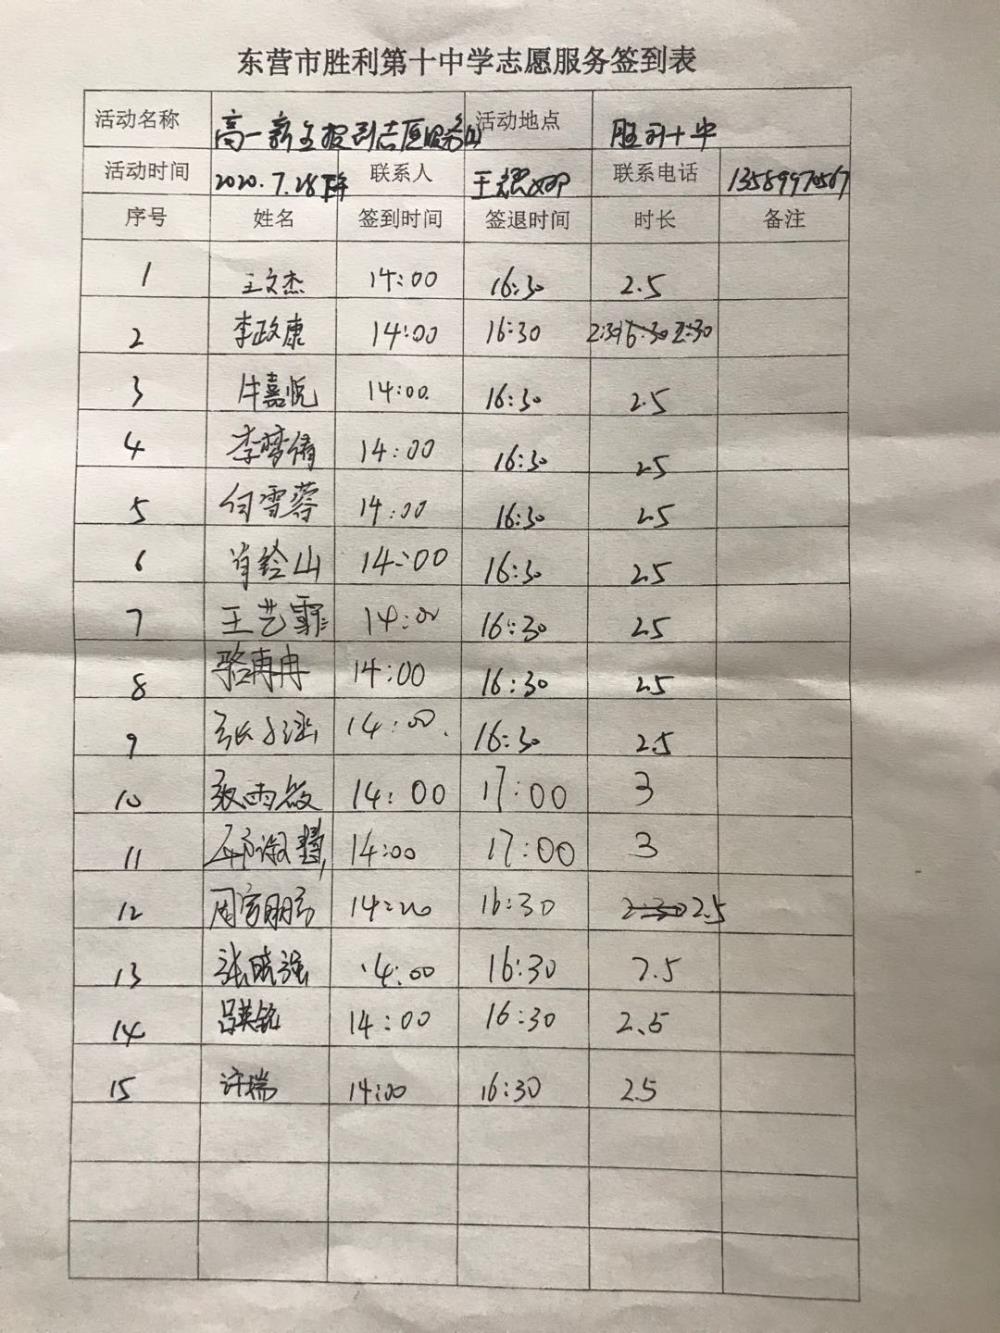 东营市胜利第十中学志愿服务签到表
活动名称 高一新生报到志愿服务(2) 活动地点 胜利十中
活动时间 2020.7.28下午 联系人 王 联系电话 13589970567
序号 姓名 签到时间 签退时间 时长 备注
1 王文杰 14:00 16:30 2.5
2 李政康 14:00 16:30 2:30
3 牛嘉悦 14:00. 16:30 2.5
4 李梦倩 14:00 16:30 2.5
5 何雪蓉 14:00 16:30 2.5
6 肖铃山 14:00 16:30 2.5
7 王艺霏 14:00 16:30 2.5
8 骆冉冉 14:00 16:30 2.5
9 张子涵 14:00. 16:30 2.5
10 14:00 17:00 3
11 14:00 17:00 3
12 14:00 16:30 2.5
13 张晓强 14:00 16:30 2.5
14 吕英铭 14:00 16:30 2.5
15 许瑞 14:00 16:30 2.5